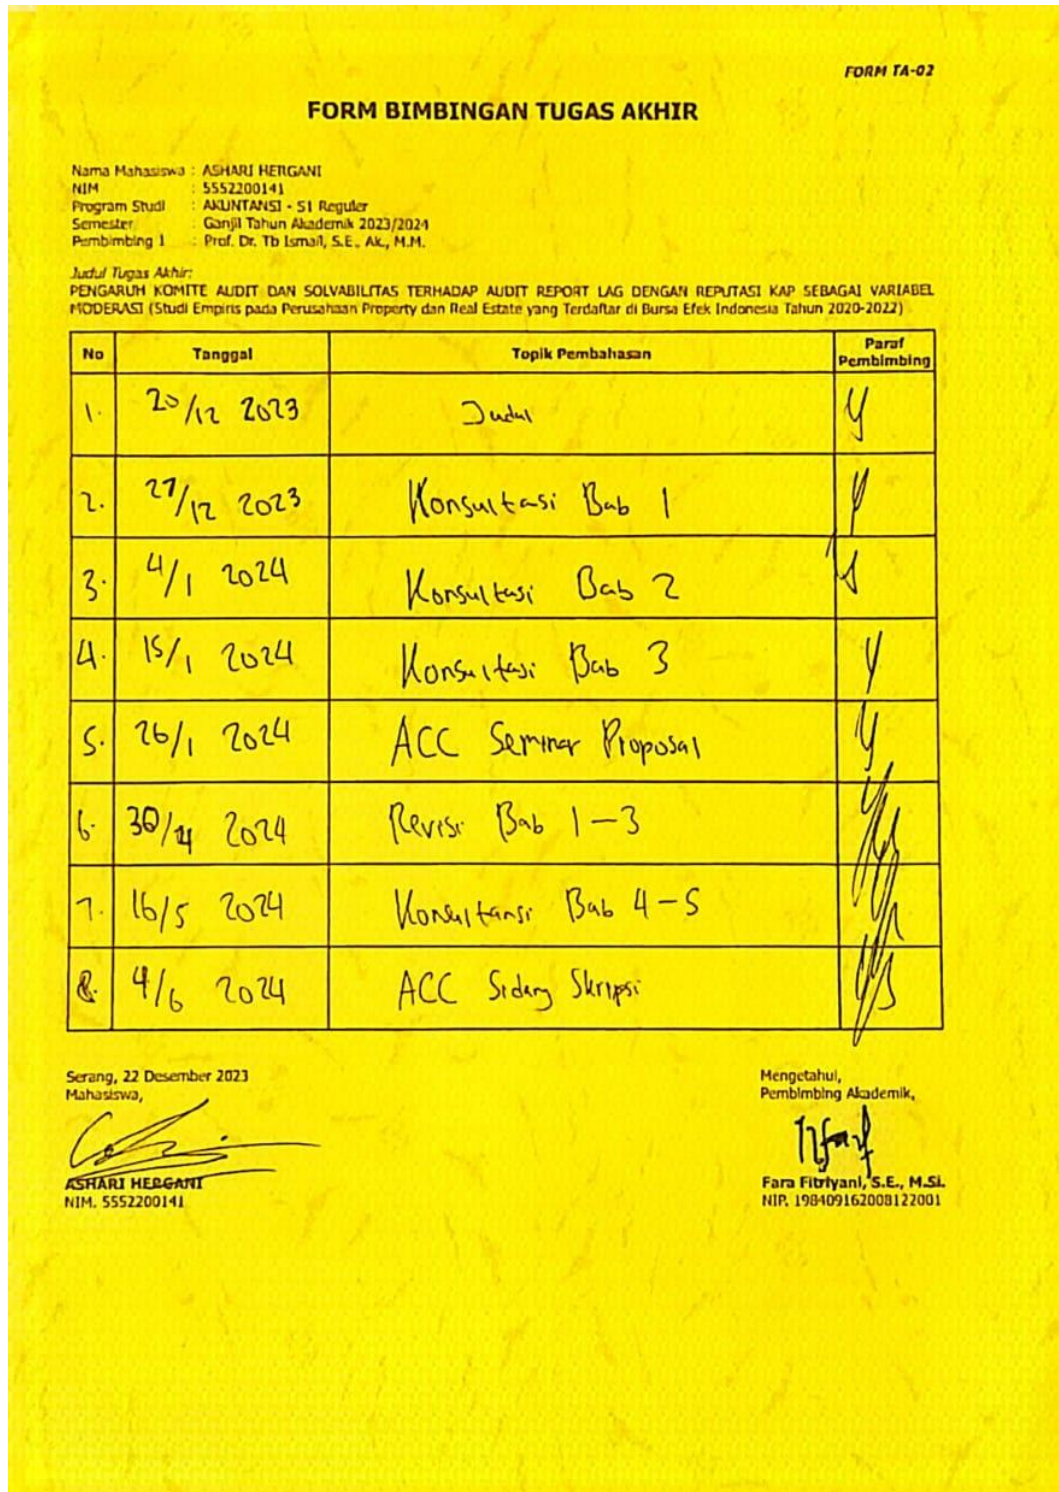 FORM TA-02
FORM BIMBINGAN TUGAS AKHIR
Nama Mahasiswa : ASHARI HERGANI
NIM : 5552200141
Program Studi : AKUNTANSI - S1 Reguler
Semester : Ganjil Tahun Akademik 2023/2024
Pembimbing 1 : Prof. Dr. Tb Ismail, S.E., Ak., M.M.
Judul Tugas Akhir:
PENGARUH KOMITE AUDIT DAN SOLVABILITAS TERHADAP AUDIT REPORT LAG DENGAN REPUTASI KAP SEBAGAI VARIABEL
MODERASI (Studi Empiris pada Perusahaan Property dan Real Estate yang Terdaftar di Bursa Efek Indonesia Tahun 2020-2022)
No Tanggal Topik Pembahasan Paraf Pembimbing
1. 20/12 2023 Judul
2. 27/12 2023 Konsultasi Bab 1
3. 4/1 2024 Konsultasi Bab 2
4. 15/1 2024 Konsultasi Bab 3
5. 26/1 2024 ACC Seminar Proposal
6. 30/4 2024 Revisi Bab 1-3
7. 16/5 2024 Konsultansi Bab 4-5
8. 4/6 2024 ACC Sidang Skripsi
Serang, 22 Desember 2023
Mahasiswa,
ASHARI HERGANI
NIM. 5552200141
Mengetahui,
Pembimbing Akademik,
Fara Fitriyani, S.E., M.Si.
NIP. 198409162008122001